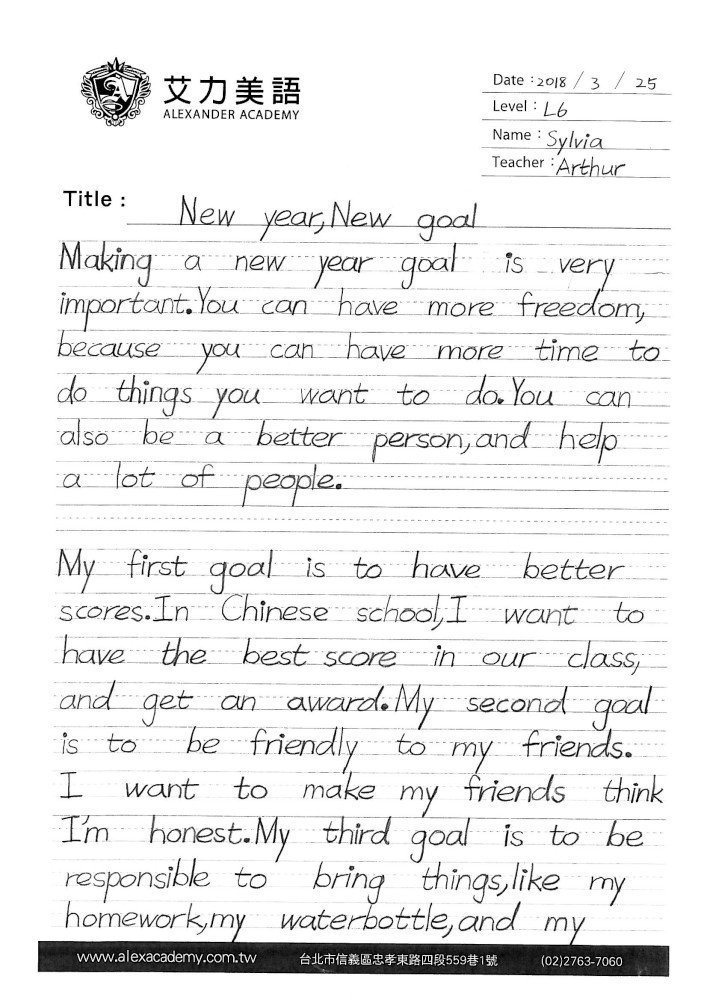 艾力美語
ALEXANDER ACADEMY
Date : 2018 / 3 / 25
Level : L6
Name : Sylvia
Teacher : Arthur
Title : New year, New goal
Making a new year goal is very
important. You can have more freedom,
because you can have more time to
do things you want to do. You can
also be a better person, and help
a lot of people.
My first goal is to have better
scores. In Chinese school, I want to
have the best score in our class,
and get an award. My second goal
is to be friendly to my friends.
I want to make my friends think
I'm honest. My third goal is to be
responsible to bring things, like my
homework, my waterbottle, and my
www.alexacademy.com.tw 台北市信義區忠孝東路四段559巷1號 (02)2763-7060